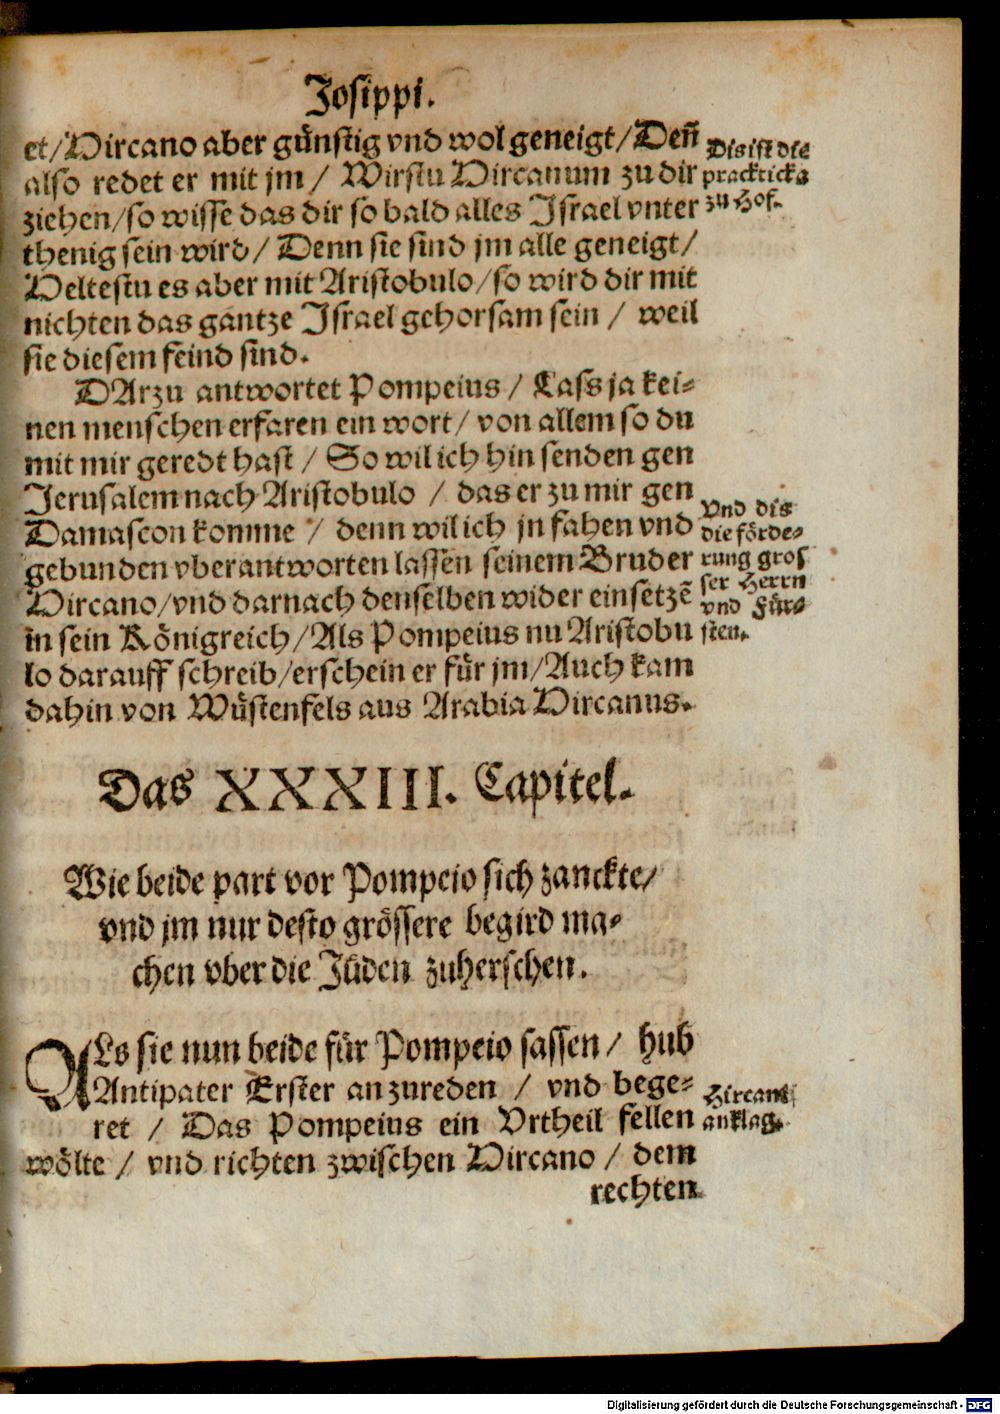 Josippi.
et/Hircano aber günstig vnd wol geneigt/Deñ
also redet er mit jm / Wirstu Hircanum zu dir
ziehen/so wisse das dir so bald alles Israel vnter
thenig sein wird/ Denn sie sind jm alle geneigt/
Heltestu es aber mit Aristobulo/so wird dir mit
nichten das gantze Israel gehorsam sein / weil
sie diesem feind sind.
DArzu antwortet Pompeius / Lass ja kei-
nen menschen erfaren ein wort/ von allem so du
mit mir geredt hast / So wil ich hin senden gen
Jerusalem nach Aristobulo / das er zu mir gen
Damascon komme / denn wil ich jn fahen vnd
gebunden vberantworten lassen seinem Bruder
Hircano/vnd darnach denselben wider einsetzē
in sein Königreich/Als Pompeius nu Aristobu
lo darauff schreib/erschein er für jm/Auch kam
dahin von Wüstenfels aus Arabia Hircanus.
Dis ist die
practicka
zu Hof.
Vnd dis
die förde-
rung gros
ser Herrn
vnd Für-
sten.
Das XXXIII. Capitel.
Wie beide part vor Pompeio sich zanckte/
vnd jm nur desto grössere begird ma-
chen vber die Jüden zuherschen.
ALs sie nun beide für Pompeio sassen/ hub
Antipater Erster an zureden / vnd bege-
ret / Das Pompeius ein Vrtheil fellen
wölte / vnd richten zwischen Hircano / dem
rechten
Hircani
anklag.
Digitalisierung gefördert durch die Deutsche Forschungsgemeinschaft - DFG